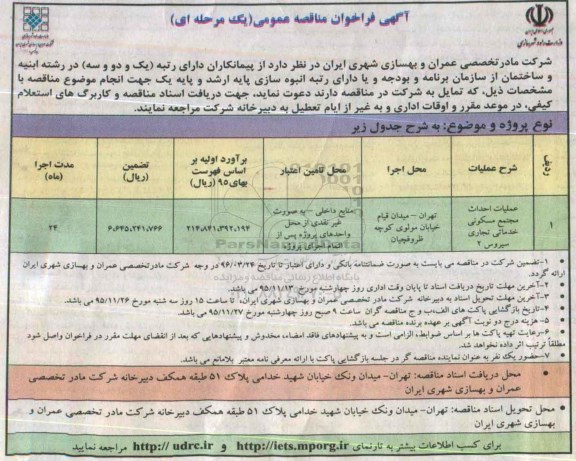 آگهی فراخوان مناقصه عمومی(یک مرحله ای)
شرکت مادرتخصصی عمران و بهسازی شهری ایران در نظر دارد از پیمانکاران دارای رتبه (یک و دو و سه) در رشته ابنیه
و ساختمان از سازمان برنامه و بودجه و یا دارای رتبه انبوه سازی پایه ارشد و پایه یک جهت انجام موضوع مناقصه با
مشخصات ذیل، که تمایل به شرکت در مناقصه دارند دعوت نماید، جهت دریافت اسناد مناقصه و کاربرگ های استعلام
کیفی، در موعد مقرر و اوقات اداری و به غیر از ایام تعطیل به دبیرخانه شرکت مراجعه نمایند.
نوع پروژه و موضوع: به شرح جدول زیر
ردیف
شرح عملیات
محل اجرا
محل تامین اعتبار
برآورد اولیه بر اساس فهرست بهای ۹۵ (ریال)
تضمین (ریال)
مدت اجرا (ماه)
۱
عملیات احداث مجتمع مسکونی خدماتی تجاری سیروس ۲
تهران – میدان قیام خیابان مولوی کوچه ظروفچیان
منابع داخلی – به صورت غیر نقدی از محل واحدهای پروژه پس از اتمام اجرای پروژه
۲۱۴،۸۲۱،۳۹۲،۱۹۴
۶،۶۴۵،۲۴۱،۷۶۶
۲۴
• ۱-تضمین شرکت در مناقصه می بایست به صورت ضمانتنامه بانکی و دارای اعتبار تا تاریخ ۹۶/۰۳/۲۴ در وجه شرکت مادرتخصصی عمران و بهسازی شهری ایران
ارائه گردد.
• ۲-آخرین مهلت تاریخ دریافت اسناد تا پایان وقت اداری روز چهارشنبه مورخ ۹۵/۱۱/۱۳ می باشد.
• ۳-آخرین مهلت تحویل اسناد به دبیرخانه شرکت مادر تخصصی عمران و بهسازی شهری ایران، تا ساعت ۱۵ روز سه شنبه مورخ ۹۵/۱۱/۲۶ می باشد.
• ۴-تاریخ بازگشایی پاکت های الف،ب و ج مناقصه گران ساعت ۹ صبح روز چهارشنبه مورخ ۹۵/۱۱/۲۷ می باشد.
• ۵- هزینه درج دو نوبت آگهی بر عهده برنده مناقصه می باشد.
• ۶-رعایت تهیه پاکت ها بر اساس ضوابط، الزامی است و به پیشنهادهای فاقد امضاء، مخدوش و پیشنهادهایی که بعد از انقضای مهلت مقرر در فراخوان واصل شود
مطلقاً ترتیب اثر داده نخواهد شد.
• ۷-حضور یک نفر به عنوان نماینده مناقصه گر در جلسه بازگشایی پاکت با ارائه معرفی نامه معتبر بلامانع می باشد.
• محل دریافت اسناد مناقصه: تهران- میدان ونک خیابان شهید خدامی پلاک ۵۱ طبقه همکف دبیرخانه شرکت مادر تخصصی
عمران و بهسازی شهری ایران
• محل تحویل اسناد مناقصه: تهران- میدان ونک خیابان شهید خدامی پلاک ۵۱ طبقه همکف دبیرخانه شرکت مادر تخصصی عمران و
بهسازی شهری ایران
برای کسب اطلاعات بیشتر به تارنمای http://iets.mporg.ir و http:// udrc.ir مراجعه نمایید